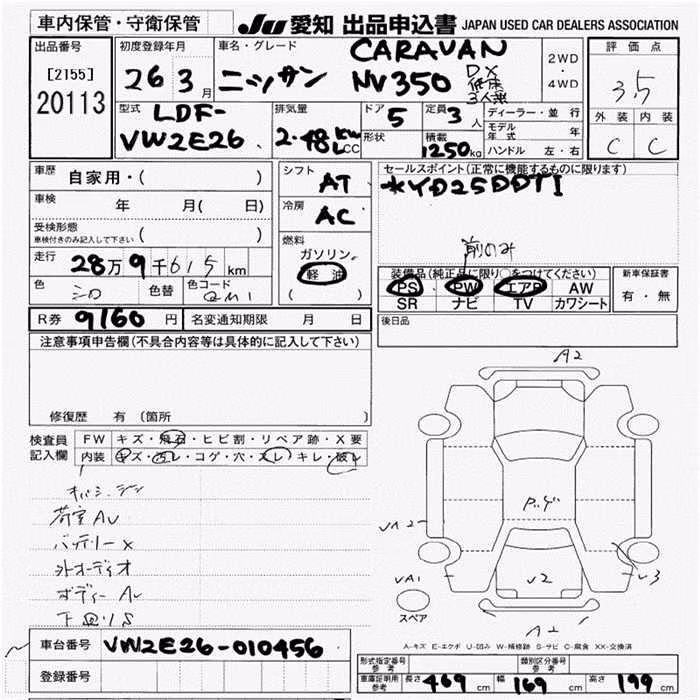 車内保管・守衛保管
JU 愛知 出品申込書 JAPAN USED CAR DEALERS ASSOCIATION
出品番号
[2155]
20113
初度登録年月
26 3月
車名・グレード
ニッサン
CARAVAN
NV350
DX
低床
3人乗
2WD
・
4WD
評価点
3.5
外装 内装
C C
型式
LDF-
VW2E26
排気量
2.48 KW
L CC
ドア
5
形状
定員
3人
積載
1250kg
ディーラー・並行
モデル年式 年
ハンドル 左・右
車歴 自家用・( )
車検 年 月( 日)
受検形態
車検付きのみ記入して下さい ( )
走行 28万9千615km
色 シロ 色替 色コード QM1
シフト AT
冷房 AC
燃料
ガソリン
軽油
( )
セールスポイント(正常に機能するものに限ります)
*YD25DDTI
前のみ
装備品(純正品に限り○をつけてください)
PS PW エアB AW
SR ナビ TV カワシート
新車保証書
有・無
R券 9160円 名変通知期限 月 日
後日品
注意事項申告欄(不具合内容等は具体的に記入して下さい)
修復歴 有(箇所 )
検査員
記入欄
FW キズ・飛石・ヒビ割・リペア跡・X要
内装 キズ・汚レ・コゲ・穴・スレ・キレ・破レ
荷室AU
バッテリーX
外オーディオ
ボディーAU
下回りS
A2
UA2
UA1
スペア
U2
U3
A2
A-キズ E-エクボ U-凹み W-補修跡 S-サビ C-腐食 XX-交換済
車台番号 VW2E26-010456
登録番号
形式指定番号
参考
類別区分番号
参考
車庫証明用
参考
長さ 469cm 幅 169cm 高さ 199cm